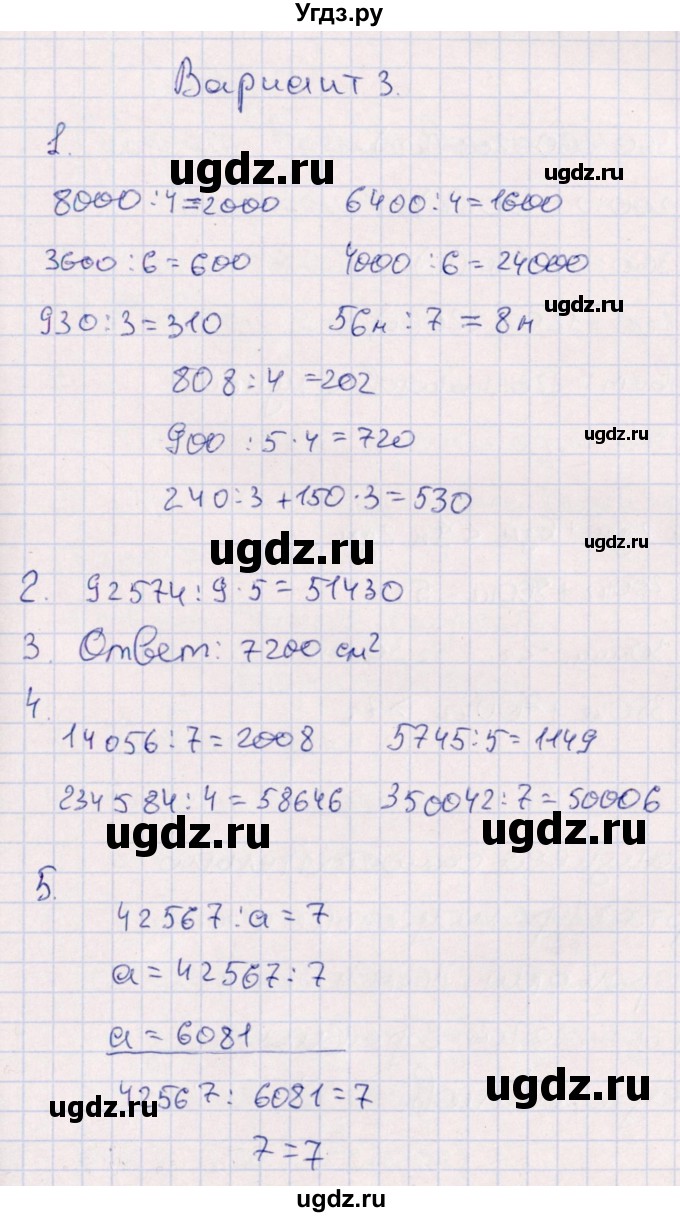 Угдз.ру
Вариант 3.
1.
ugdz.ru
ugdz.ru
8000 : 4 = 2000 6400 : 4 = 1600
3600 : 6 = 600 4000 : 6 = 24000
ugdz.ru
930 : 3 = 310 56н : 7 = 8н
808 : 4 = 202
900 : 5 · 4 = 720
ugdz.ru
240 : 3 + 150 · 3 = 530
ugdz.ru
ugdz.ru
2. 92574 : 9 · 5 = 51430
3. Ответ: 7200 см²
4.
14056 : 7 = 2008 5745 : 5 = 1149
234584 : 4 = 58646 350042 : 7 = 50006
ugdz.ru
ugdz.ru
5.
42567 : а = 7
а = 42567 : 7
а = 6081
ugdz.ru
ugdz.ru
42567 : 6081 = 7
7 = 7
ugdz.ru